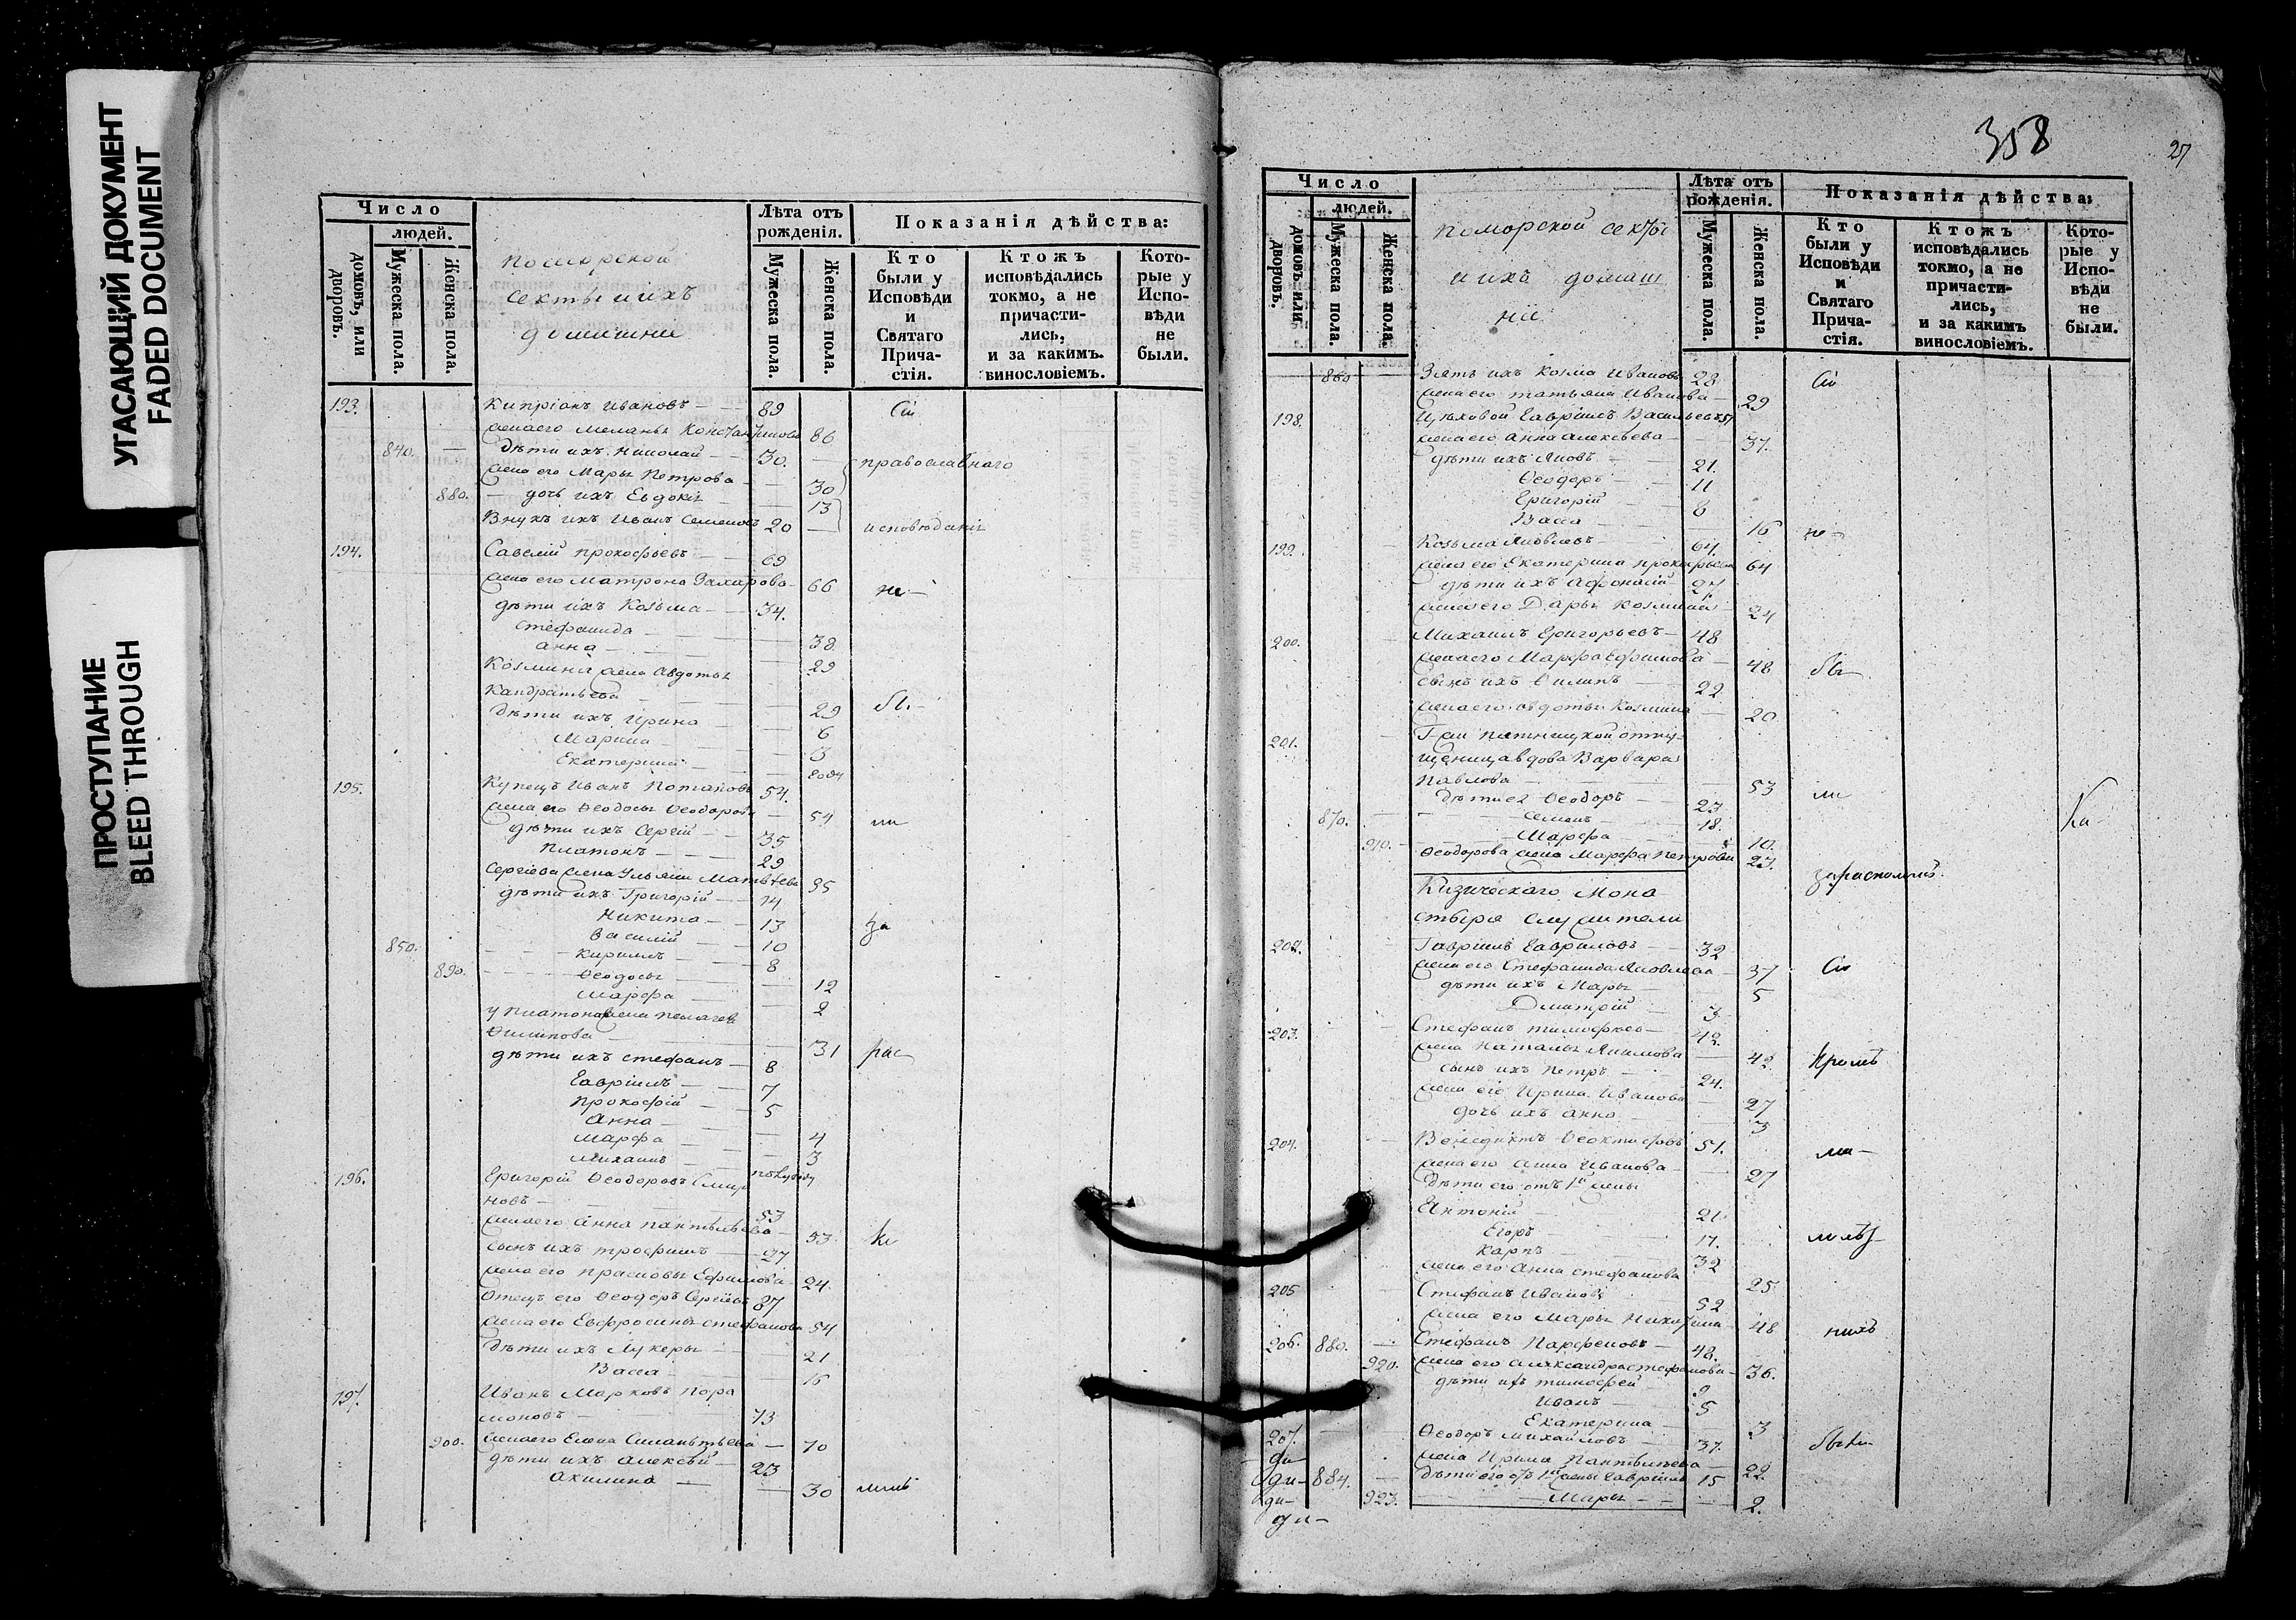 УГАСАЮЩИЙ ДОКУМЕНТ
FADED DOCUMENT
ПРОСТУПАНИЕ
BLEED THROUGH
Число
людей.
домовъ, или дворовъ.
Мужеска пола.
Женска пола.
поморской
секты и ихъ
домашние
Лѣта отъ рожденія.
Мужеска пола.
Женска пола.
Показанія дѣйства:
Кто были у Исповѣди и Святаго Причастія.
Ктожъ исповѣдались токмо, а не причастились, и за какимъ винословіемъ.
Которые у Исповѣди не были.
193. Кипріанъ Ивановъ 89 Сіи
жена его Меланья Константинова 86
840. дѣти ихъ Николай 30. православнаго
жена его Марья Петрова 30
880. дочь ихъ Евдокія 13
Внукъ ихъ Иванъ Семеновъ 20 исповѣданія
194. Савелій Прокофьевъ 69
жена его Матрона Захарова 66 не
дѣти ихъ Козьма 34.
Стефанида 38
Анна 29
Козмина жена Авдотья
Кандратьева 29 бы
дѣти ихъ Ирина 6
Марина 3
Екатерина
195. Купецъ Иванъ Потаповъ 54.
жена его Ѳеодосья Ѳеодорова 54 ли
дѣти ихъ Сергій 35
Платонъ 29
Сергіева жена Ульяна Матвѣева 35
дѣти ихъ Григорій 14
Никита 13 за
Василій 10
850. Кирилъ 8
890. Ѳеодосья 12
Марфа 2
у Платона жена Пелагея
Филипова 31 рас
дѣти ихъ Стефанъ 8
Гавріилъ 7
Прокофій 5
Анна 4
Марфа 3
Михаилъ
196. Григорій Ѳеодоровъ Смир
новъ 53
жена его Анна Пантелѣева 53 ко
сынъ ихъ Трофимъ 27
жена его Прасковья Ефимова 24
Отецъ его Ѳеодоръ Сергіевъ 87
жена его Евфросинья Стефанова 54
дѣти ихъ Лукерья 21
Васса 16
197. Иванъ Марковъ Пара
моновъ 73
900. жена его Елена Силантьева 70
дѣти ихъ Алексѣй 23
Акилина 30
358
27
Число
людей.
домовъ или дворовъ.
Мужеска пола.
Женска пола.
поморской секты
и ихъ домаш
ніе
Лѣта отъ рожденія.
Мужеска пола.
Женска пола.
Показанія дѣйства:
Кто были у Исповѣди и Святаго Причастія.
Ктожъ исповѣдались токмо, а не причастились, и за какимъ винословіемъ.
Которые у Исповѣди не были.
860 Зять ихъ Козма Ивановъ 28 Сіи
жена его Татьяна Иванова 29
198. Цѣховой Гавріилъ Васильевъ 51
жена его Анна Алексѣева 37.
дѣти ихъ Яковъ 21.
Ѳеодоръ 11
Григорій 8
Васса 16 не
199. Козьма Яковлевъ 64
жена его Екатерина Прокофьева 64
дѣти ихъ Афонасій 27
жена его Дарья Козмина 24
200. Михаилъ Григорьевъ 48
жена его Марфа Ефимова 48 бы
сынъ ихъ Филипъ 22
жена его Авдотья Козмина 20
201.
щеница вдова Варвара
Павлова 53 ли
дѣти ея Ѳеодоръ 23
870. Семенъ 18.
910. Марфа 10.
Ѳеодорова жена Марфа Петрова 23.
Кизическаго Мона
стыря служители
202. Гавріилъ Гавриловъ 32
жена его Стефанида Яковлева 37 Сіи
дѣти ихъ Марья 5
Дмитрій 3
203. Стефанъ Тимофѣевъ 42
жена Наталья Якимова 42 кромѣ
сынъ ихъ Петръ 24.
жена его Ирина Иванова 27
дочь ихъ Анна 3
204. Венедиктъ Ѳеоктистовъ 51. ма
жена его Анна Иванова 27
дѣти его отъ 1й жены
Антоній 21
Егоръ 17. лолѣт
Карпъ 32
жена его Анна Стефанова 25
205 Стефанъ Ивановъ 52
жена его Марья Никитина 48 нихъ
206. 880. Стефанъ Парфеновъ 48.
920. жена его Александра Стефанова 36.
дѣти ихъ Тимофей 9
Иванъ 5
Екатерина 3
207. Ѳеодоръ Михайловъ 37. были
жена Ирина Пантелѣева 22
884. дѣти его отъ 1й жены Гавріилъ 15
923. Марья 2.